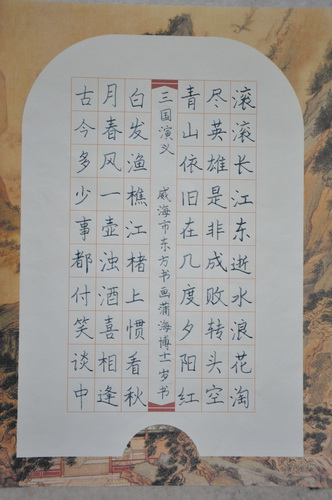 滚滚长江东逝水浪花淘
尽英雄是非成败转头空
青山依旧在几度夕阳红
三国演义 威海市东方书画蒲海博十一岁书
白发渔樵江楮上惯看秋
月春风一壶浊酒喜相逢
古今多少事都付笑谈中